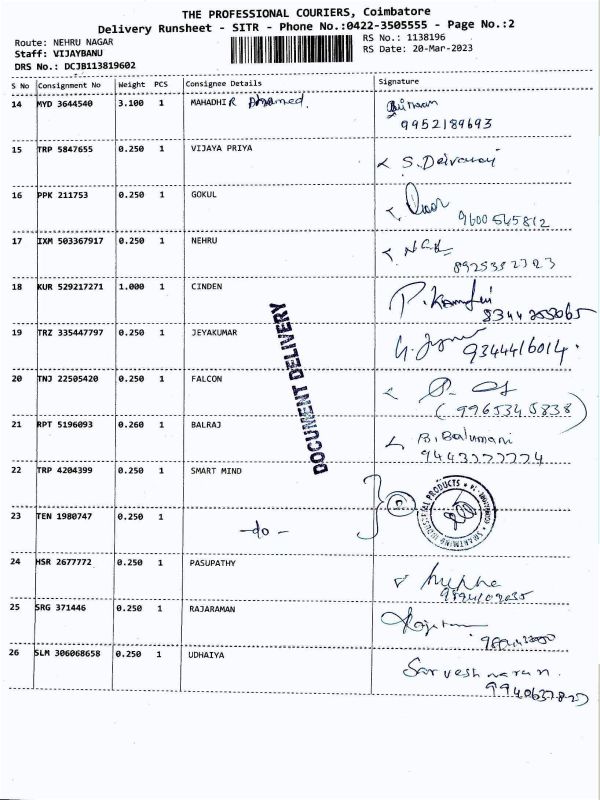 THE PROFESSIONAL COURIERS, Coimbatore
Delivery Runsheet - SITR - Phone No.:0422-3505555 - Page No.:2
Route: NEHRU NAGAR
Staff: VIJAYBANU
DRS No.: DCJB113819602
RS No.: 1138196
RS Date: 20-Mar-2023
S No Consignment No Weight PCS Consignee Details Signature
14 MYD 3644540 3.100 1 MAHADHIR Ahamed
9952189693
15 TRP 5847655 0.250 1 VIJAYA PRIYA
16 PPK 211753 0.250 1 GOKUL
9600545812
17 IXM 503367917 0.250 1 NEHRU
18 KUR 529217271 1.000 1 CINDEN
19 TRZ 335447797 0.250 1 JEYAKUMAR
9344416014.
20 TNJ 22505420 0.250 1 FALCON
(9965345838)
21 RPT 5196093 0.260 1 BALRAJ B. Balumani
22 TRP 4204399 0.250 1 SMART MIND
23 TEN 1980747 0.250 1 -do-
24 HSR 2677772 0.250 1 PASUPATHY
25 SRG 371446 0.250 1 RAJARAMAN
26 SLM 306068658 0.250 1 UDHAIYA
DOCUMENT DELIVERY